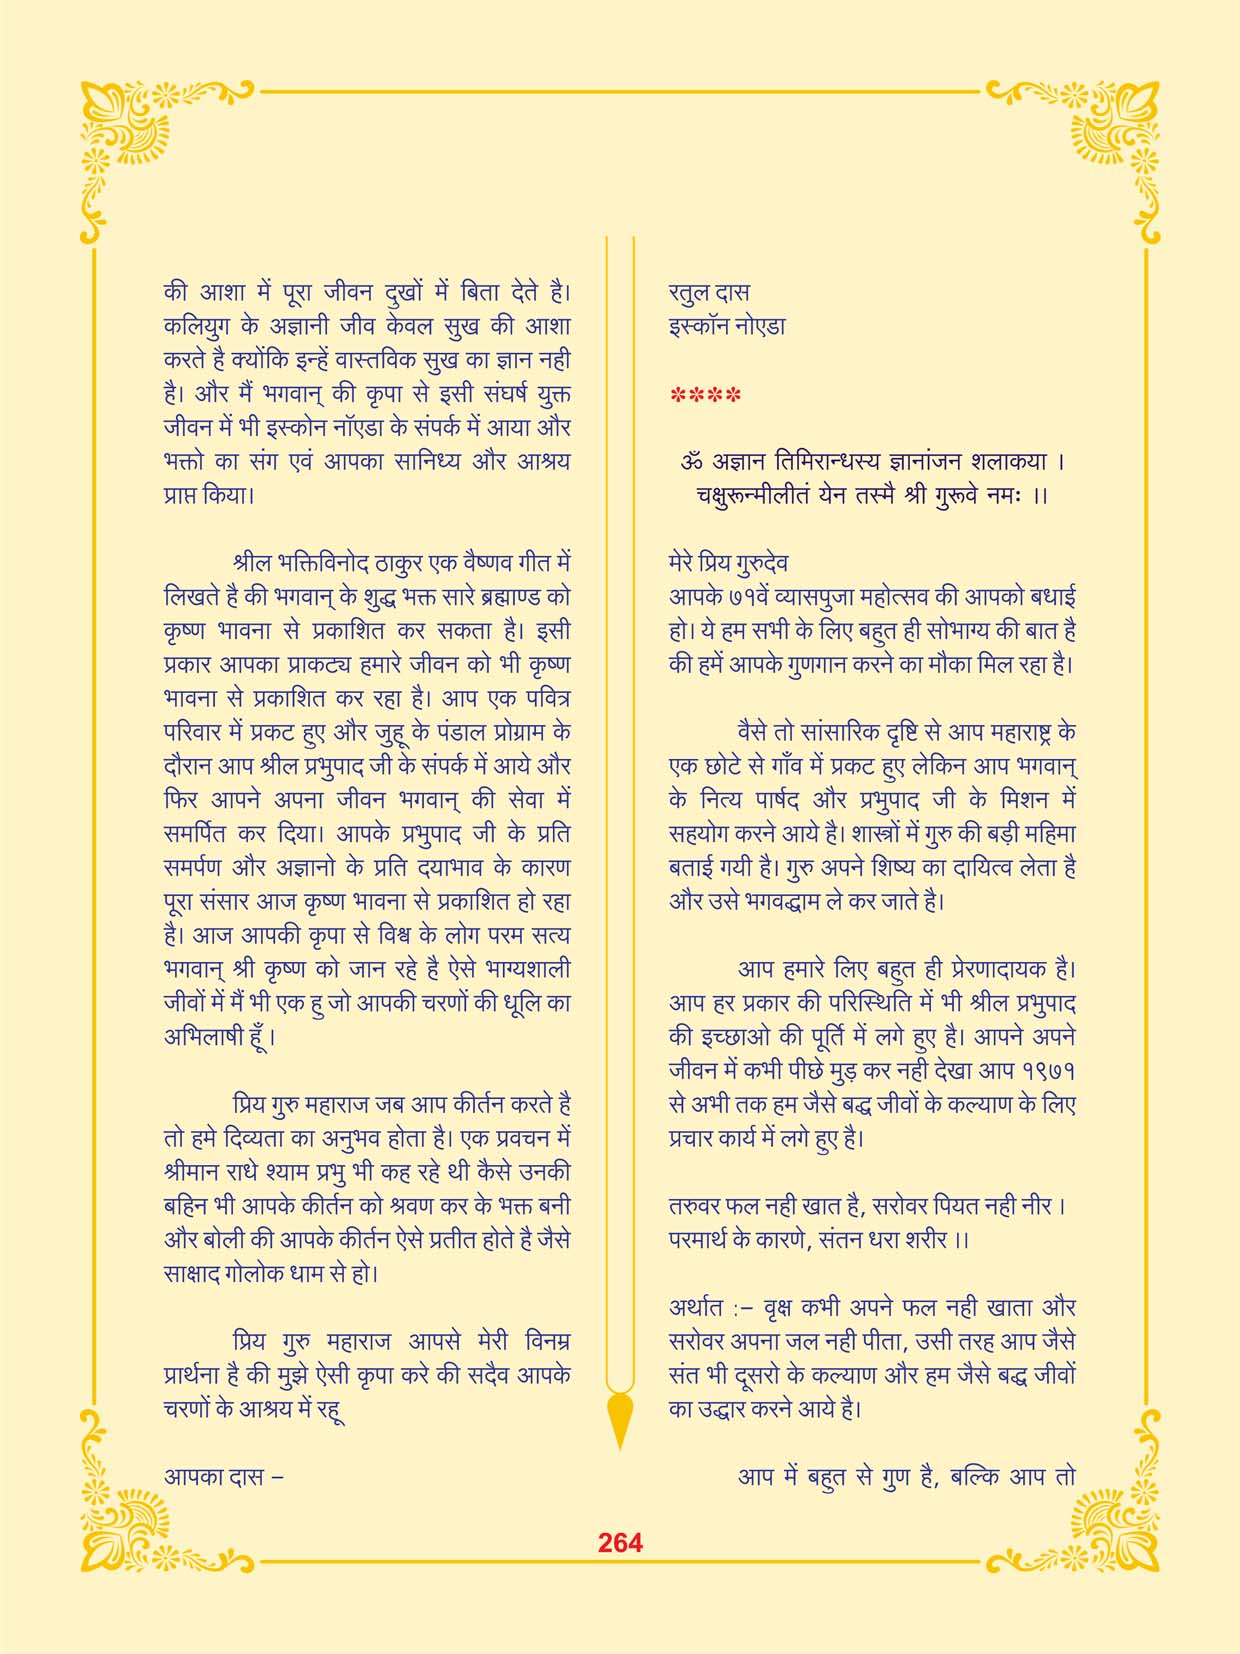 की आशा में पूरा जीवन दुखों में बिता देते है।
कलियुग के अज्ञानी जीव केवल सुख की आशा
करते है क्योंकि इन्हें वास्तविक सुख का ज्ञान नही
है। और मैं भगवान् की कृपा से इसी संघर्ष युक्त
जीवन में भी इस्कोन नॉएडा के संपर्क में आया और
भक्तो का संग एवं आपका सानिध्य और आश्रय
प्राप्त किया।
श्रील भक्तिविनोद ठाकुर एक वैष्णव गीत में
लिखते है की भगवान् के शुद्ध भक्त सारे ब्रह्माण्ड को
कृष्ण भावना से प्रकाशित कर सकता है। इसी
प्रकार आपका प्राकट्य हमारे जीवन को भी कृष्ण
भावना से प्रकाशित कर रहा है। आप एक पवित्र
परिवार में प्रकट हुए और जुहू के पंडाल प्रोग्राम के
दौरान आप श्रील प्रभुपाद जी के संपर्क में आये और
फिर आपने अपना जीवन भगवान् की सेवा में
समर्पित कर दिया। आपके प्रभुपाद जी के प्रति
समर्पण और अज्ञानो के प्रति दयाभाव के कारण
पूरा संसार आज कृष्ण भावना से प्रकाशित हो रहा
है। आज आपकी कृपा से विश्व के लोग परम सत्य
भगवान् श्री कृष्ण को जान रहे है ऐसे भाग्यशाली
जीवों में मैं भी एक हु जो आपकी चरणों की धूलि का
अभिलाषी हूँ ।
प्रिय गुरु महाराज जब आप कीर्तन करते है
तो हमे दिव्यता का अनुभव होता है। एक प्रवचन में
श्रीमान राधे श्याम प्रभु भी कह रहे थी कैसे उनकी
बहिन भी आपके कीर्तन को श्रवण कर के भक्त बनी
और बोली की आपके कीर्तन ऐसे प्रतीत होते है जैसे
साक्षाद गोलोक धाम से हो।
प्रिय गुरु महाराज आपसे मेरी विनम्र
प्रार्थना है की मुझे ऐसी कृपा करे की सदैव आपके
चरणों के आश्रय में रहू
आपका दास –
रतुल दास
इस्कॉन नोएडा
****
ॐ अज्ञान तिमिरान्धस्य ज्ञानांजन शलाकया ।
चक्षुरून्मीलीतं येन तस्मै श्री गुरूवे नमः ।।
मेरे प्रिय गुरुदेव
आपके ७१वें व्यासपुजा महोत्सव की आपको बधाई
हो। ये हम सभी के लिए बहुत ही सोभाग्य की बात है
की हमें आपके गुणगान करने का मौका मिल रहा है।
वैसे तो सांसारिक दृष्टि से आप महाराष्ट्र के
एक छोटे से गाँव में प्रकट हुए लेकिन आप भगवान्
के नित्य पार्षद और प्रभुपाद जी के मिशन में
सहयोग करने आये है। शास्त्रों में गुरु की बड़ी महिमा
बताई गयी है। गुरु अपने शिष्य का दायित्व लेता है
और उसे भगवद्धाम ले कर जाते है।
आप हमारे लिए बहुत ही प्रेरणादायक है।
आप हर प्रकार की परिस्थिति में भी श्रील प्रभुपाद
की इच्छाओ की पूर्ति में लगे हुए है। आपने अपने
जीवन में कभी पीछे मुड़ कर नही देखा आप १९७१
से अभी तक हम जैसे बद्ध जीवों के कल्याण के लिए
प्रचार कार्य में लगे हुए है।
तरुवर फल नही खात है, सरोवर पियत नही नीर ।
परमार्थ के कारणे, संतन धरा शरीर ।।
अर्थात :– वृक्ष कभी अपने फल नही खाता और
सरोवर अपना जल नही पीता, उसी तरह आप जैसे
संत भी दूसरो के कल्याण और हम जैसे बद्ध जीवों
का उद्धार करने आये है।
आप में बहुत से गुण है, बल्कि आप तो
264